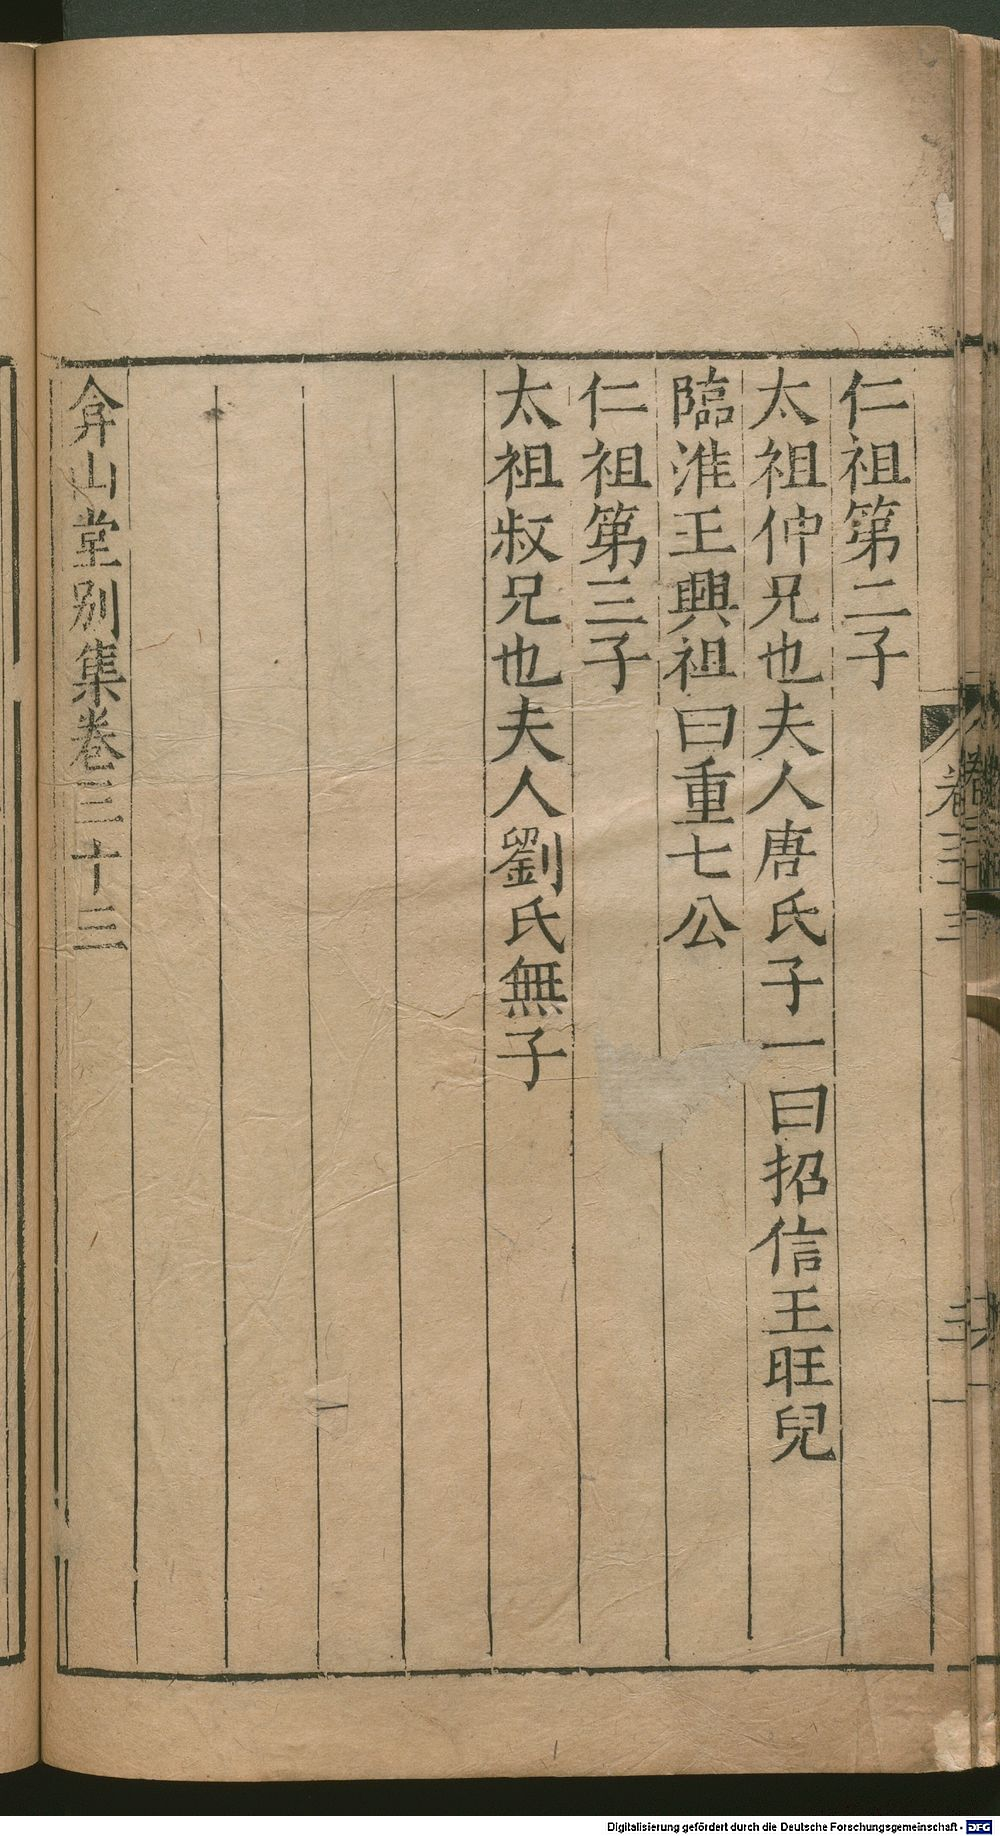 仁祖第二子
太祖仲兄也夫人唐氏子一曰招信王旺兒
臨淮王興祖曰重七公
仁祖第三子
太祖叔兄也夫人劉氏無子
弇山堂別集卷三十三
卷三十三
三
Digitalisierung gefördert durch die Deutsche Forschungsgemeinschaft - DFG